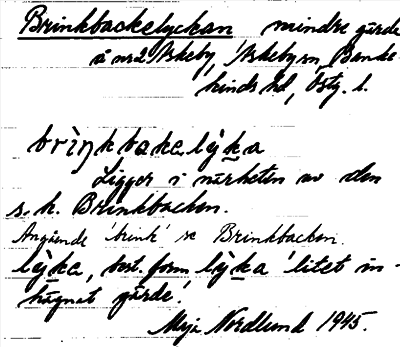 Brinkbackelyckan mindre gärde
å nr2 Askeby, Askeby sn, Banke-
kinds hd, Östg. l.
brìŋkbakelỳka
Ligger i närheten av den
s. k. Brinkbacken.
Angående 'brink' se Brinkbacken.
lỳka, best. form lỳka 'litet in-
hägnat gärde'.
Nordlund 1945.